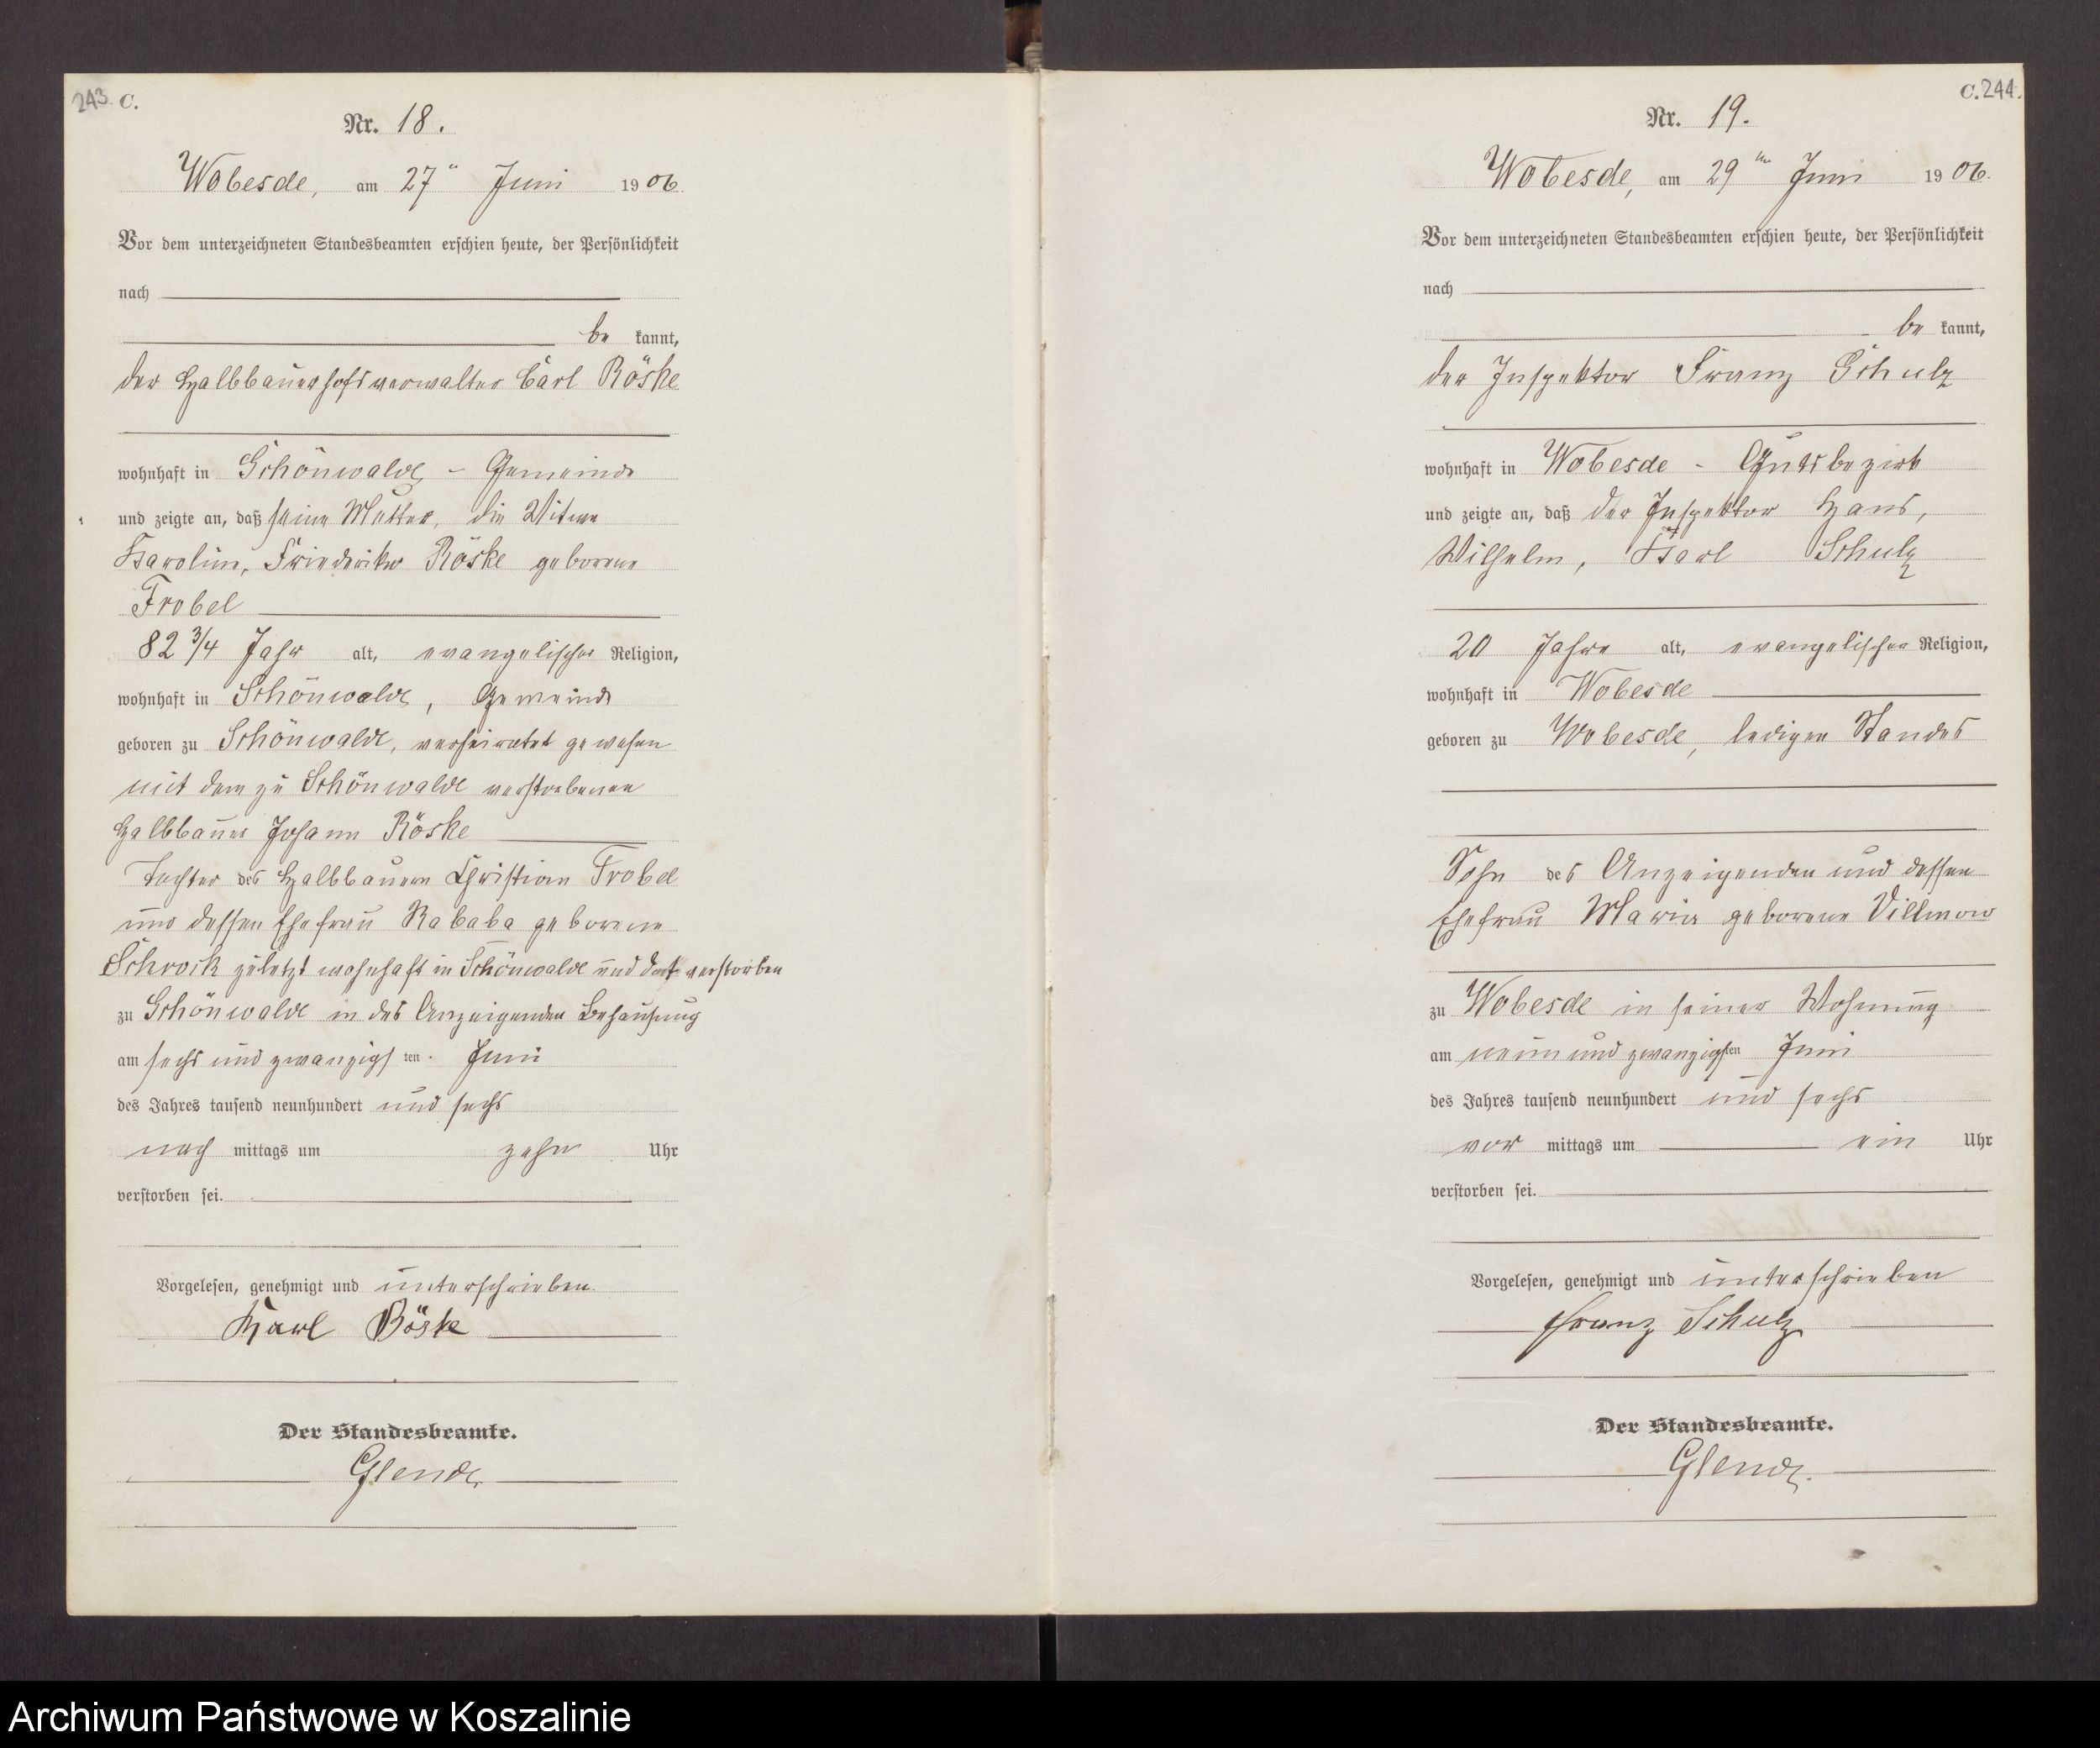 243 C.
Nr. 18.
Wobesde, am 27ten Juni 1906
Vor dem unterzeichneten Standesbeamten erschien heute, der Persönlichkeit
nach
be kannt,
der Halbbauerhofsverwalter Carl Röske
wohnhaft in Schönwalde - Gemeinde
und zeigte an, daß seine Mutter, die Witwe
Karoline, Friederike Röske geborene
Trobel
82 3/4 Jahr alt, evangelischer Religion,
wohnhaft in Schönwalde, Gemeinde
geboren zu Schönwalde, verheiratet gewesen
mit dem zu Schönwalde verstorbenen
Halbbauer Johann Röske
Tochter des Halbbauern Christian Trobel
und dessen Ehefrau Rababa geborene
Schrock zuletzt wohnhaft in Schönwalde und dort verstorben
zu Schönwalde in des Anzeigenden Behausung
am sechs und zwanzigsten Juni
des Jahres tausend neunhundert und sechs
nach mittags um zehn Uhr
verstorben sei.
Vorgelesen, genehmigt und unterschrieben.
Karl Röske
Der Standesbeamte.
Glende
C. 244.
Nr. 19.
Wobesde, am 29ten Juni 1906.
Vor dem unterzeichneten Standesbeamten erschien heute, der Persönlichkeit
nach
be kannt,
der Inspektor Franz Schulz
wohnhaft in Wobesde - Gutsbezirk
und zeigte an, daß der Inspektor Hans,
Wilhelm, Karl Schulz
20 Jahre alt, evangelischer Religion,
wohnhaft in Wobesde
geboren zu Wobesde, ledigen Standes
Sohn des Anzeigenden und dessen
Ehefrau Maria geborene Villmow
zu Wobesde in seiner Wohnung
am neun und zwanzigsten Juni
des Jahres tausend neunhundert und sechs
vor mittags um ein Uhr
verstorben sei.
Vorgelesen, genehmigt und unterschrieben
Franz Schulz
Der Standesbeamte.
Glende.
Archiwum Państwowe w Koszalinie